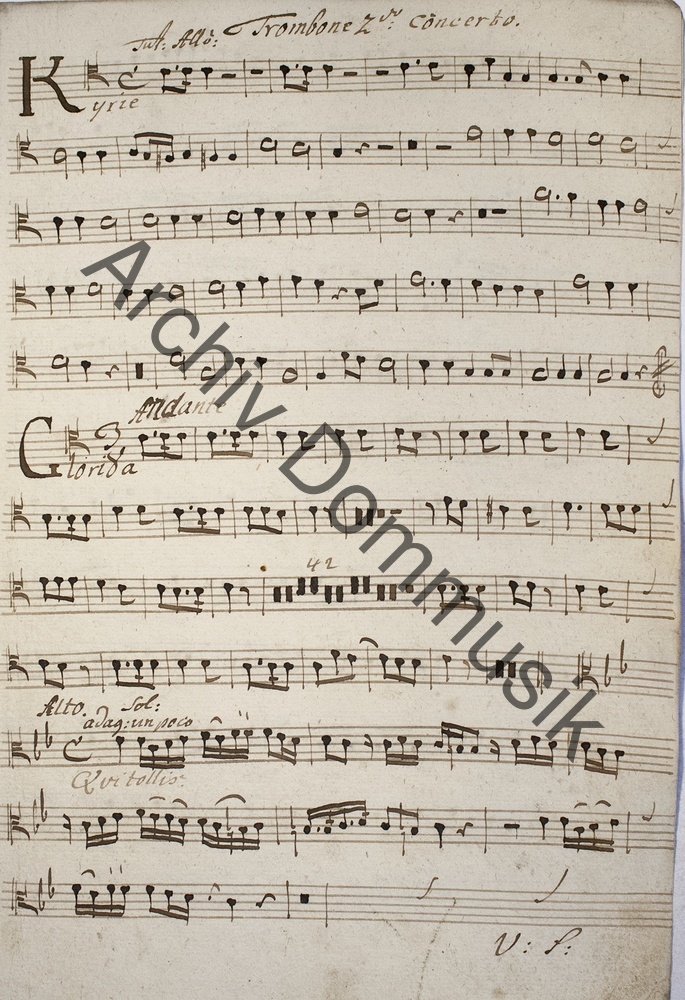 Tut: Allo: Trombone 2do: Concerto.
Kyrie
Andante
Gloria
42
Alto Sol:
adag: un poco
Qui tollis:
V: S:
Archiv Dommusik